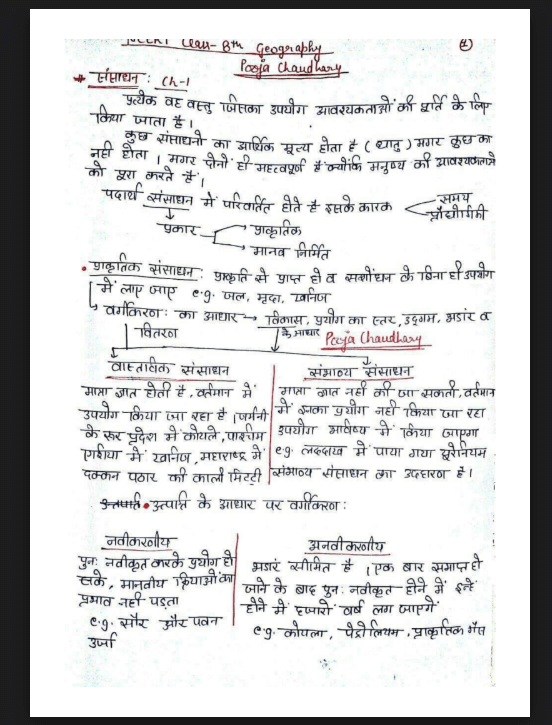 NCERT Class-8th Geography
①
Pooja Chaudhary
* संसाधन : Ch-1
प्रत्येक वह वस्तु जिसका उपयोग आवश्यकताओं की पूर्ति के लिए
किया जाता है।
कुछ संसाधनो का आर्थिक मूल्य होता है (धातु) मगर कुछ का
नही होता। मगर दोनों ही महत्वपूर्ण है क्योंकि मनुष्य की आवश्यकताओ
को पूरा करते है।
पदार्थ संसाधन में परिवर्तित होते है इसके कारक
समय
प्रौद्योगिकी
प्रकार
प्राकृतिक
मानव निर्मित
• प्राकृतिक संसाधन : प्राकृति से प्राप्त हो व संशोधन के बिना ही उपयोग
में लाए जाए e.g. जल, मृदा, खनिज
वर्गीकरण : का आधार → विकास, प्रयोग का स्तर, उद्गम, भडांर व
वितरण
के आधार
Pooja Chaudhary
वास्तविक संसाधन
मात्रा ज्ञात होती है, वर्तमान में
उपयोग किया जा रहा है। जर्मनी
के रूर प्रदेश में कोयले, पश्चिम
एशिया में खनिज, महाराष्ट्र में
दक्कन पठार की काली मिटटी
संभाव्य संसाधन
मात्रा ज्ञात नही की जा सकती, वर्तमान
में इनका प्रयोग नही किया जा रहा
उपयोग भविष्य में किया जाएगा
e.g. लददाख में पाया गया यूरेनियम
संभाव्य संसाधन का उदहारण है।
• उत्पत्ति के आधार पर वर्गीकरण :
नवीकरणीय
पुन: नवीकृत करके प्रयोग हो
सके, मानवीय क्रियाओं का
प्रभाव नही पड़ता
e.g. सौर और पवन
उर्जा
अनवीकरणीय
भडारं सीमित है। एक बार समाप्त हो
जाने के बाद पुन: नवीकृत होने में इन्हे
होने में हजारो वर्ष लग जाएगें
e.g. कोयला, पेट्रोलियम, प्राकृतिक गैस